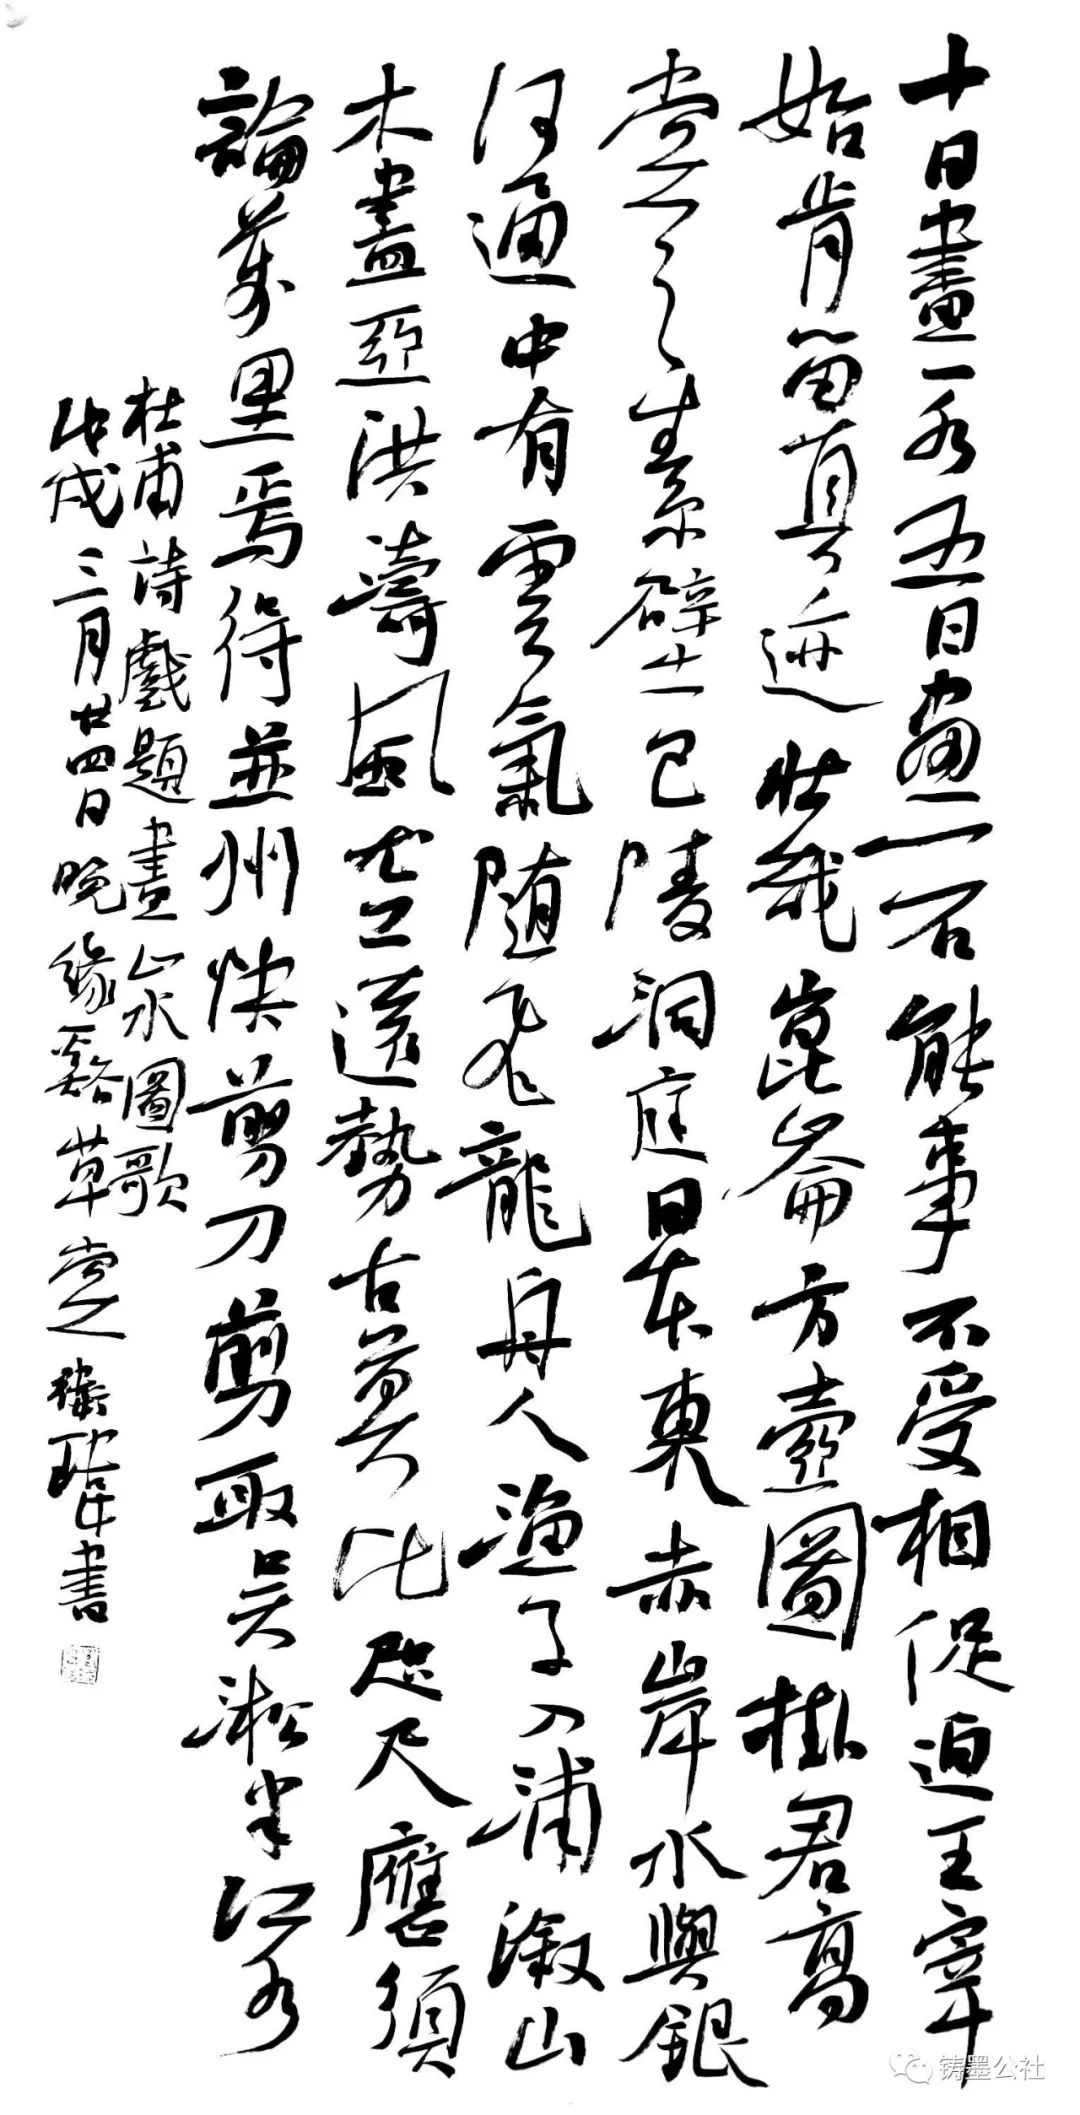 十日畫一水五日畫一石能事不受相促迫王宰
始肯留真迹壯哉崑崙方壺圖掛君高
堂之素壁巴陵洞庭日本東赤岸水與銀
河通中有雲氣随飛龍舟人漁子入浦漵山
木盡亞洪濤風尤工遠勢古莫比咫尺應須
論萬里焉得並州快剪刀剪取吳淞半江水
杜甫詩戲題畫山水圖歌
戊戌三月廿四日晚緣谿草堂衛書
铸墨公社